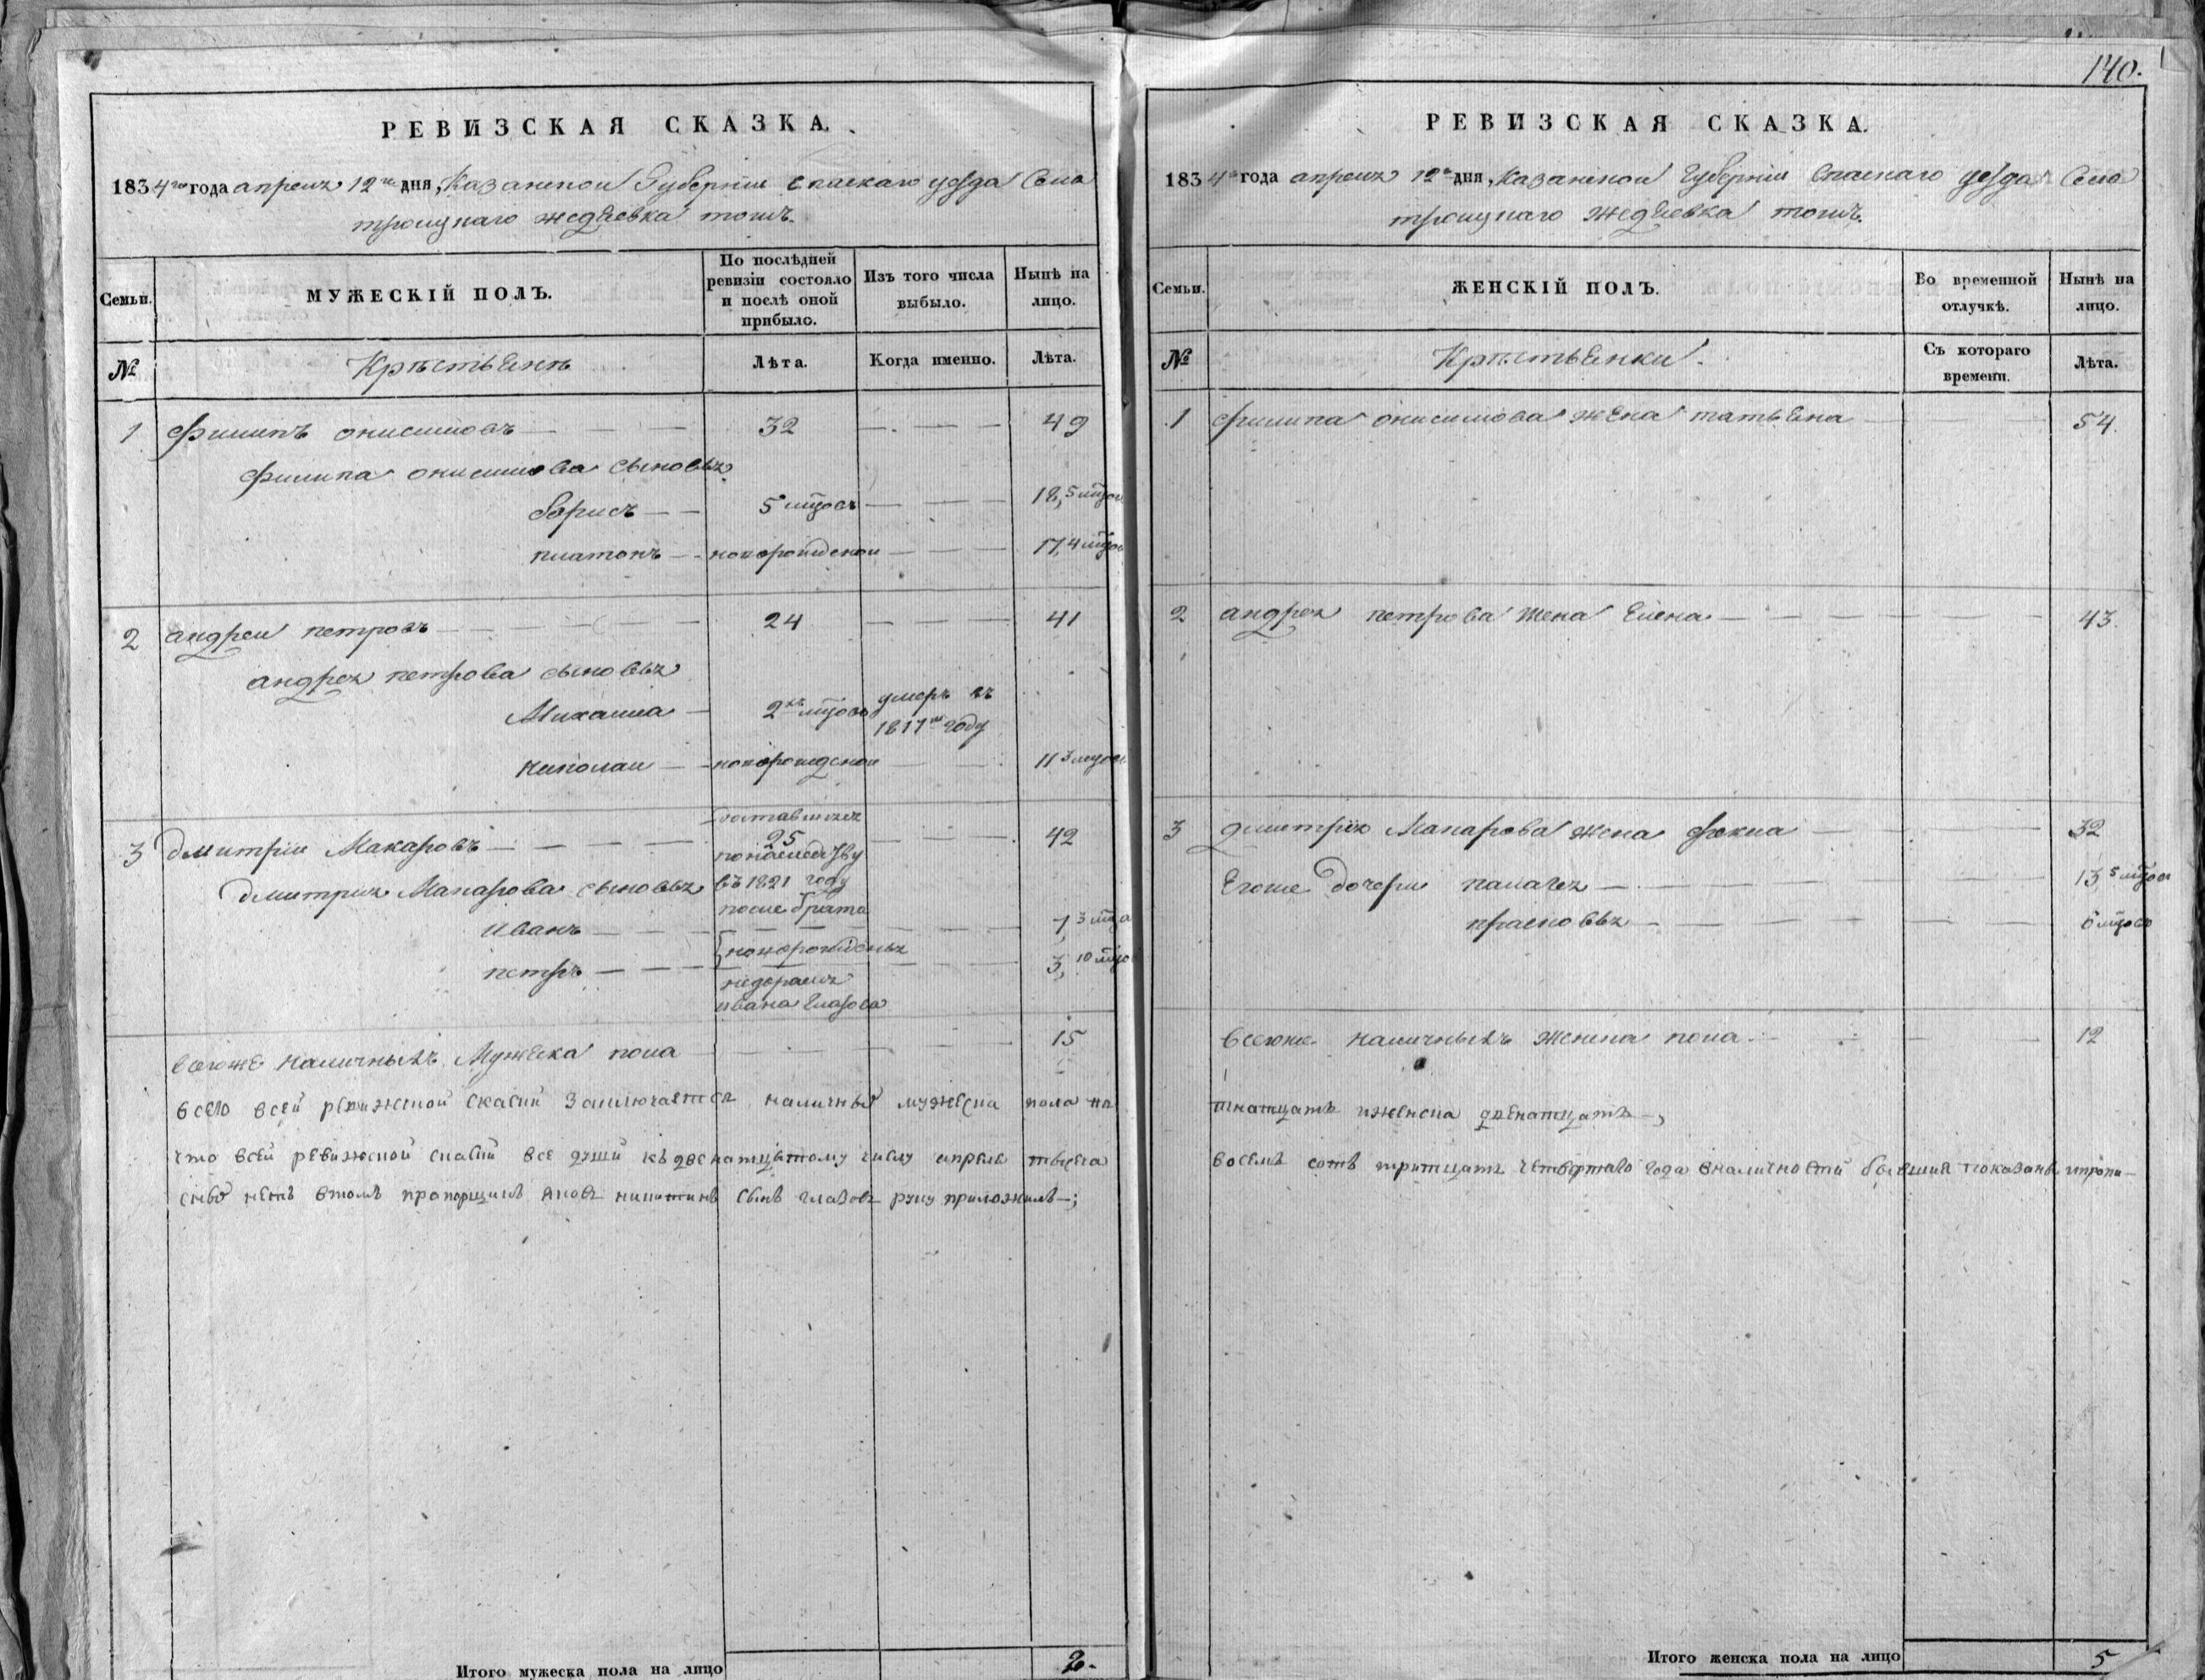 140.
РЕВИЗСКАЯ СКАЗКА.
1834го года апреля 12го дня, Казанской Губернии Спаскаго уезда Села
троицкаго жедяевка тожъ.
Семьи.
МУЖЕСКІЙ ПОЛЪ.
По послѣдней ревизіи состояло и послѣ оной прибыло.
Изъ того числа выбыло.
Нынѣ на лицо.
№
Крѣстьянѣ
Лѣта.
Когда именно.
Лѣта.
1 Филипъ онисимовъ 32 49
Филипа онисимова сыновья
борисъ 5 мцовъ 18, 5 мцов
платонъ новорожденои 17, 4 мцов
2 андреи петровъ 24 41
андрея петрова сыновья
Михаила 2хъ мцовъ умеръ въ 1817м году
николаи новорожденои 11 3 мцов
3 дмитрии Макаровъ 25 42
доставшихся
по наследству
въ 1821 году
после брата
дмитрия Макарова сыновья
иванъ 7, 3 мца
новорожденыя
петръ 3, 10 мцо
ивана Глазова
всегоже наличныхъ Мужеска пола 15
всего всей ревижской скаски заключается наличных мужеска пола пя
что всей ревижской скаски все души къ двенатцатому числу апреля тысеча
нетъ втомъ прапорщикъ яковъ никитинъ сынъ глазовъ руку приложилъ;
Итого мужеска пола на лицо
РЕВИЗСКАЯ СКАЗКА.
1834го года апреля 12го дня, Казанской Губернии Спаскаго уезда Села
троицкаго жедяевка тожъ.
Семьи.
ЖЕНСКІЙ ПОЛЪ.
Во временной отлучкѣ.
Нынѣ на лицо.
№
Крѣстьянки.
Съ котораго времени.
Лѣта.
1 Филипа онисимова жена татьяна 54.
2 андрея петрова жена Елена 43.
3 дмитрия Макарова жена фекла 32
Егоже дочери палагея 13, 5 мцов
прасковья 6 мцовъ
всегоже наличныхъ женска пола 12
тнатцать иженска двенатцать,
восемь сотъ тритцать четвертаго года вналичности бывшия показаны ипропи-
Итого женска пола на лицо 5